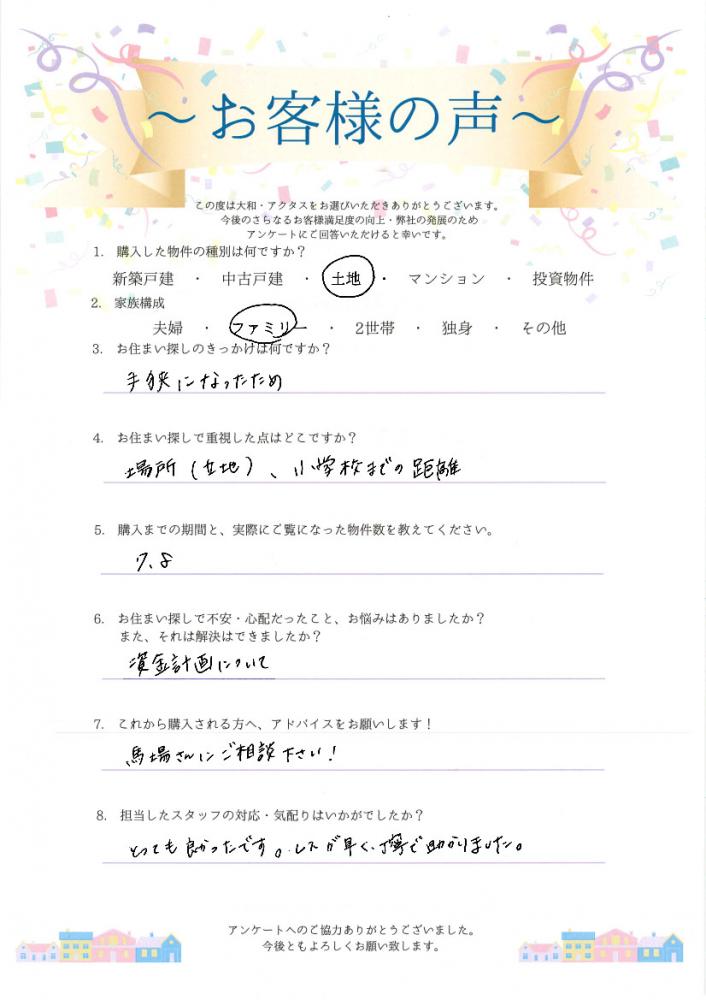 ～お客様の声～
この度は大和・アクタスをお選びいただきありがとうございます。
今後のさらなるお客様満足度の向上・弊社の発展のため
アンケートにご回答いただけると幸いです。
1. 購入した物件の種別は何ですか？
新築戸建 ・ 中古戸建 ・ 土地 ・ マンション ・ 投資物件
2. 家族構成
夫婦 ・ ファミリー ・ 2世帯 ・ 独身 ・ その他
3. お住まい探しのきっかけは何ですか？
手狭になったため
4. お住まい探しで重視した点はどこですか？
場所（立地）、小学校までの距離
5. 購入までの期間と、実際にご覧になった物件数を教えてください。
7、8
6. お住まい探しで不安・心配だったこと、お悩みはありましたか？
また、それは解決はできましたか？
資金計画について
7. これから購入される方へ、アドバイスをお願いします！
馬場さんにご相談下さい！
8. 担当したスタッフの対応・気配りはいかがでしたか？
とっても良かったです。レスが早く、丁寧で助かりました。
アンケートへのご協力ありがとうございました。
今後ともよろしくお願い致します。